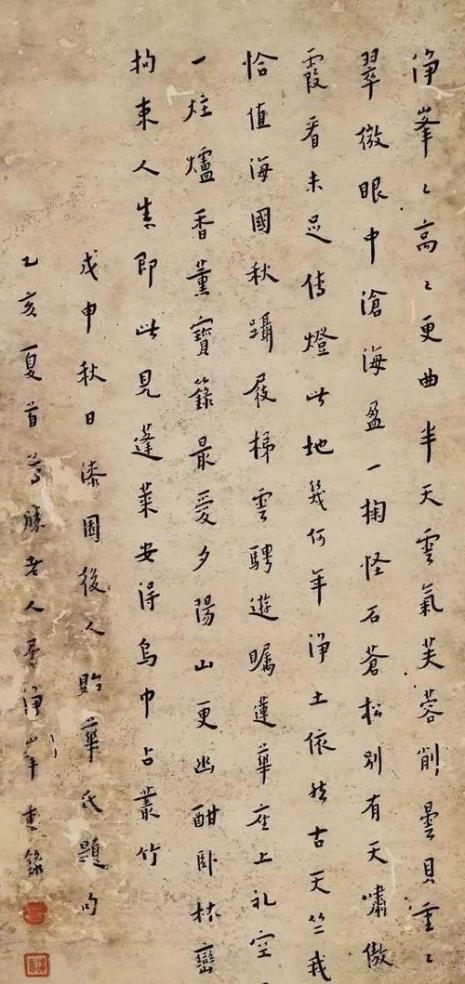 淨峯〻高〻更曲半天雲氣芙蓉削曇貝重〻
翠微眼中滄海盈一掬怪石蒼松別有天嘯傲
霞看未足傳燈此地幾何年淨土依然古天竺我
恰值海國秋躡屐梯雲騁遊矚蓮華座上礼空
一炷爐香薰寶籙最愛夕陽山更幽酣卧林巒
拘束人生即此見蓬萊安得烏巾占叢竹
戊申秋日漆園後人貽華氏題句
乙亥夏首尊勝老人居淨峯書錄